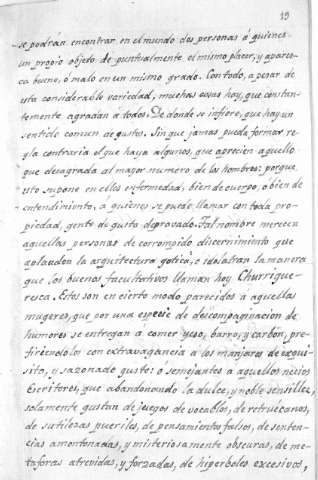 19
se podrán encontrar en el mundo dos personas á quienes
un propio objeto dé puntualmente el mismo placer, y apares-
ca bueno, ó malo en un mismo grado. Con todo, a pesar de
esta considerable variedad, muchas cosas hay, que constan-
temente agradan á todos. De donde se infiere, que hay un
sentido comun de gustos. Sin que jamas pueda formar re-
gla contraria el que haya algunos, que aprecien aquello
que desagrada al mayor numero de los hombres: porque
esto supone en ellos enfermedad, bien de cuerpo, ó bien de
entendimiento, á quienes se puede llamar con toda pro-
piedad, gente de gusto depravado. Tal nombre merecen
aquellas personas de corrompido discernimiento que
aplauden la arquitectura gotica, e idolatran la manera
que los buenos facultativos llaman hoy Churrigue-
resca. Estos son en cierto modo parecidos á aquellas
mugeres, que por una especie de descompaginacion de
humores se entregan a comer yeso, barro, y carbon, pre-
firiendolos con extravagancia a los manjares de exqui-
sito, y sazonado gusto: ó semejantes a aquellos necios
Escritores, que abandonando la dulce, y noble sensillez,
solamente gustan de juegos de vocablos, de retruecanos,
de sutilezas pueriles, de pensamientos falsos, de senten-
cias amontonadas, y misteriosamente obscuras, de me-
taforas atrevidas, y forzadas, de hiperboles excesivos,